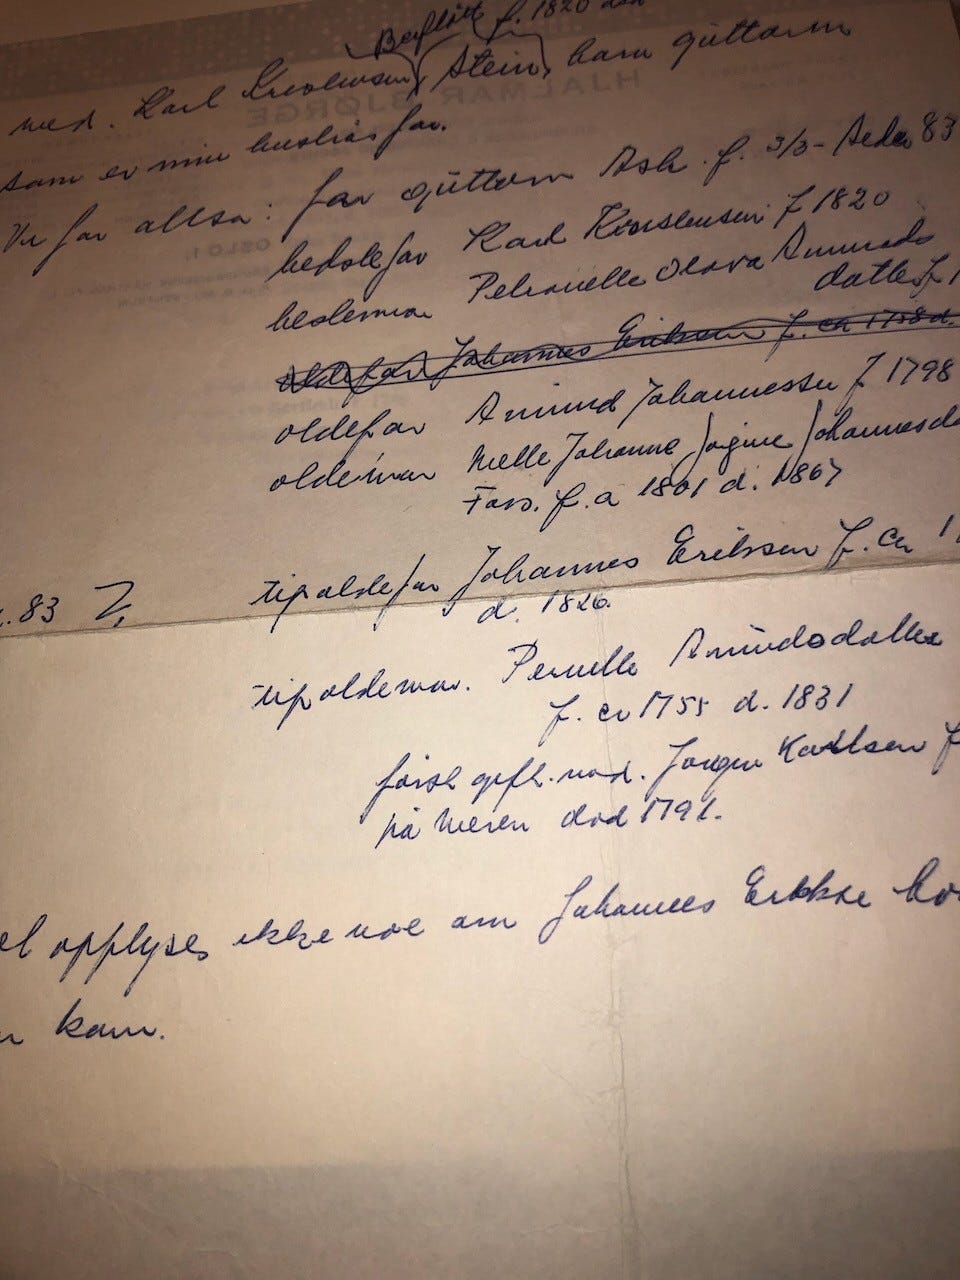 Berflått f. 1820
med. Karl Kristensen (Stein, barn Guttorm
som er min
Vi får altså: far Guttorm Ask. f. 3/3 - 83
bedstefar Karl Kristensen f 1820
bestemor Petronelle Olava Amunds
datter f 1
oldefar Johannes Eriksen f. ca 1758 d.
oldefar Amund Johannessen f 1798
oldemor Nelle Johanne Jørgine Johannesda
Fass. f. ca 1801 d. 1867
.83 tipoldefar Johannes Eriksen f. ca 1
d. 1826.
tipoldemor. Pernelle Amundsdatter
f. ca 1755 d. 1831
først gift. med. Jørgen Karlsen f
på Meren død 1791.
el opplyses ikke noe om Johannes
kom.
HJALMAR BJØRGE
OSLO 1.